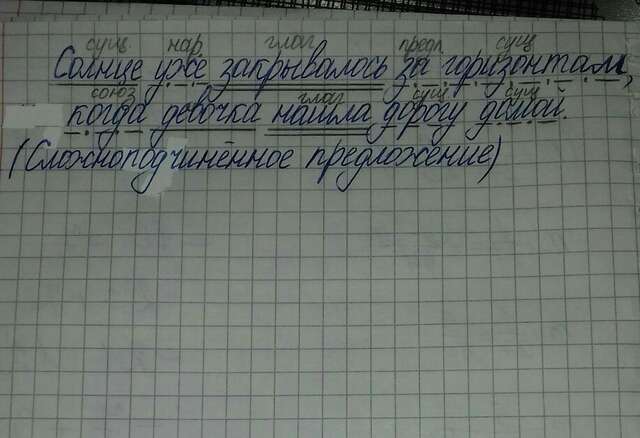 сущ нар глаг предл сущ
Солнце уже закрывалось за горизонтам,
союз глаг сущ сущ
когда девочка нашла дорогу дамой.
(Сложноподчинённое предложение)